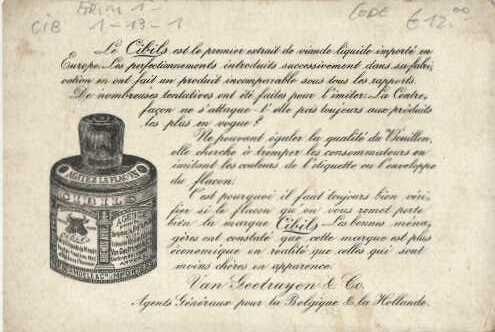 CIB
FRIM 1-
1-13-1
CODE
€ 12.00
Le Cibils est le premier extrait de viande liquide importé en
Europe. Les perfectionnements introduits successivement dans sa fabri-
cation en ont fait un produit incomparable sous tous les rapports.
De nombreuses tentatives ont été faites pour l'imiter. La Contre,
façon ne s'attaque-t'elle pas toujours aux produits
les plus en vogue?
Ne pouvant égaler la qualité du Bouillon,
elle cherche à tromper les consommateurs en
imitant les couleurs de l'étiquette ou l'enveloppe
du flacon.
C'est pourquoi il faut toujours bien véri,
fier si le flacon qu'on vous remet porte
bien la marque Cibils. Les bonnes ména,
gères ont constaté que cette marque est plus
économique en réalité que celles qui sont
moins chères en apparence.
Van Geetruyen & Co.
Agents Généraux pour la Belgique & la Hollande.
AGITEZ LE FLACON
CIBILS
Cibils